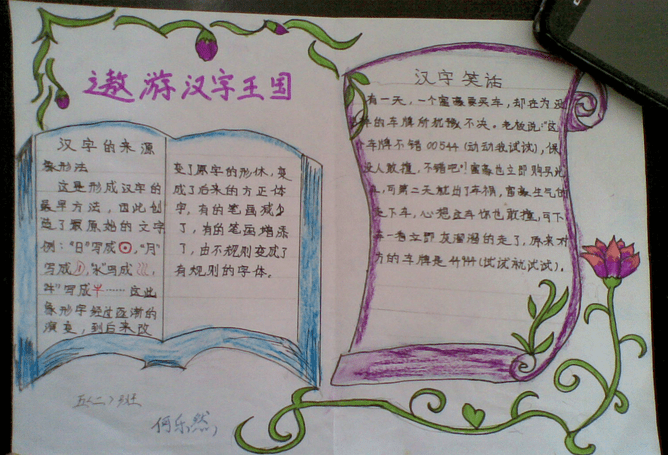 遨游汉字王国
汉字的来源
象形法
这是形成汉字的
最早方法，因此创
造了最原始的文字
例："日"写成⊙，"月"
写成，"水"写成，
"牛"写成……这些
象形字经过逐渐的
演变，到后来改
变了原字的形体，变
成了后来的方正体
字，有的笔画减少
了，有的笔画增添
了，由不规则变成了
有规则的字体。
汉字笑话
有一天，一个富豪要买车，却在为
车的车牌所犹豫不决。老板说："这
车牌不错00544（动动我试试），保
没人敢撞，不错吧"！富豪也立即购买
，可第二天就出了车祸，富豪生气
走下车，心想这车你也敢撞，可下
一看立即灰溜溜的走了，原来对
方的车牌是44944（试试就试试）。
五〈二〉班
何乐然